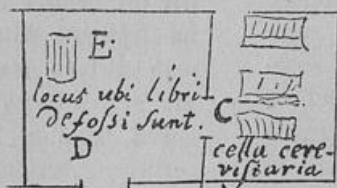 E.
locus ubi libri
defossi sunt.
D
C
cella cere-
visiaria